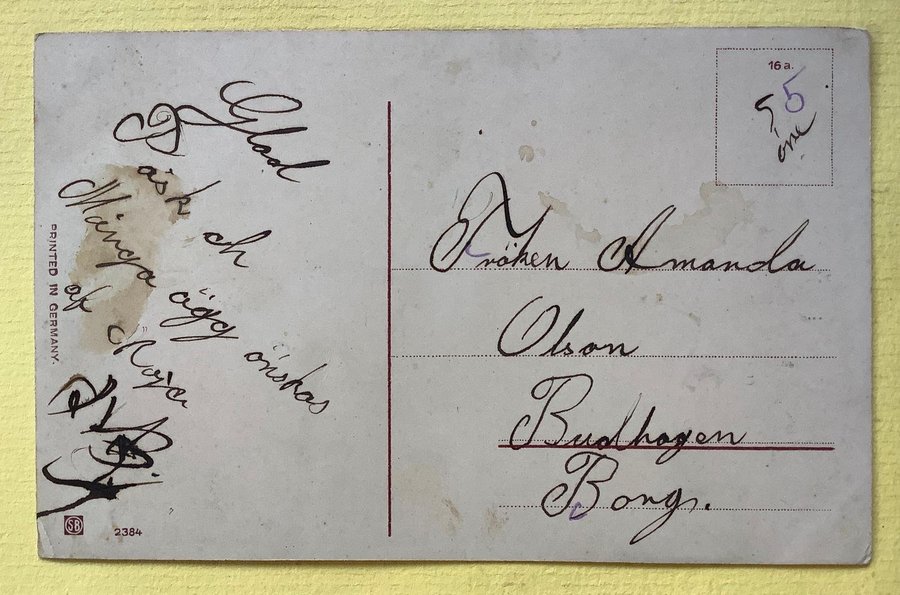 Glad
Påsk och
Många ägg önskas
af Maja
PRINTED IN GERMANY.
SB
2384
16 a.
5
5
öre
Fröken Amanda
Olson
Budhagen
Borg.